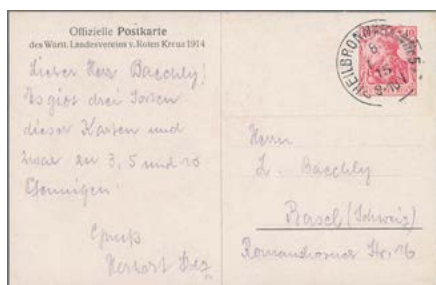 Offizielle Postkarte
des Württ. Landesvereins v. Roten Kreuz 1914
Lieber Herr Baechly!
Es gibt drei Sorten
dieser Karten und
zwar zu 3, 5 und 10
Pfennigen.
Gruß
Herbert
HEILBRONN
15
10
Herrn
L. Baechly
Basel (Schweiz)
Str. 16